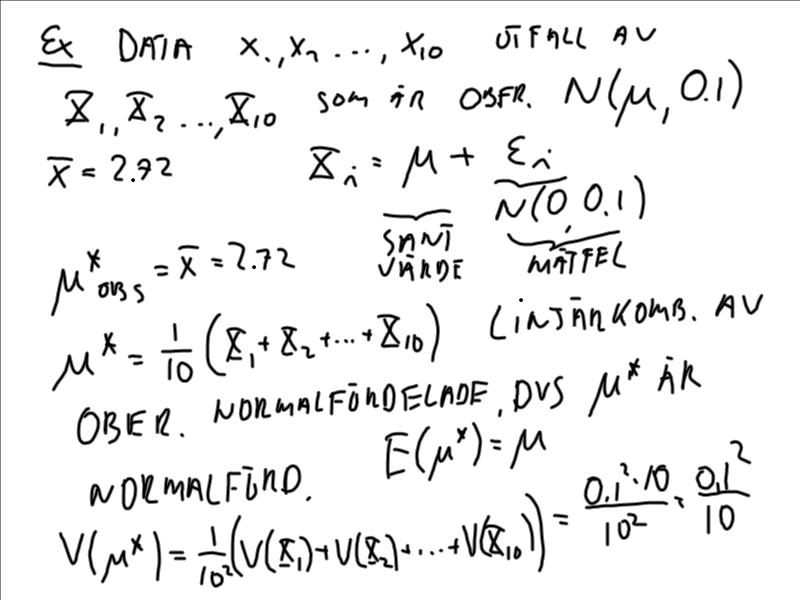 Ex DATA x₁, x₂ ..., x₁₀ UTFALL AV
X₁, X₂ ..., X₁₀ SOM ÄR OBER. N(μ, 0.1)
x̄ = 2.72 Xᵢ = μ + εᵢ
N(0, 0.1)
SANT VÄRDE
MÄTFEL
μ*OBS = x̄ = 2.72
μ* = 1/10 (X₁ + X₂ + ... + X₁₀) LINJÄRKOMB. AV
OBER. NORMALFÖRDELADE, DVS μ* ÄR
NORMALFÖRD. E(μ*) = μ
V(μ*) = 1/10² (V(X₁) + V(X₂) + ... + V(X₁₀)) = 0.1²·10/10² = 0.1²/10